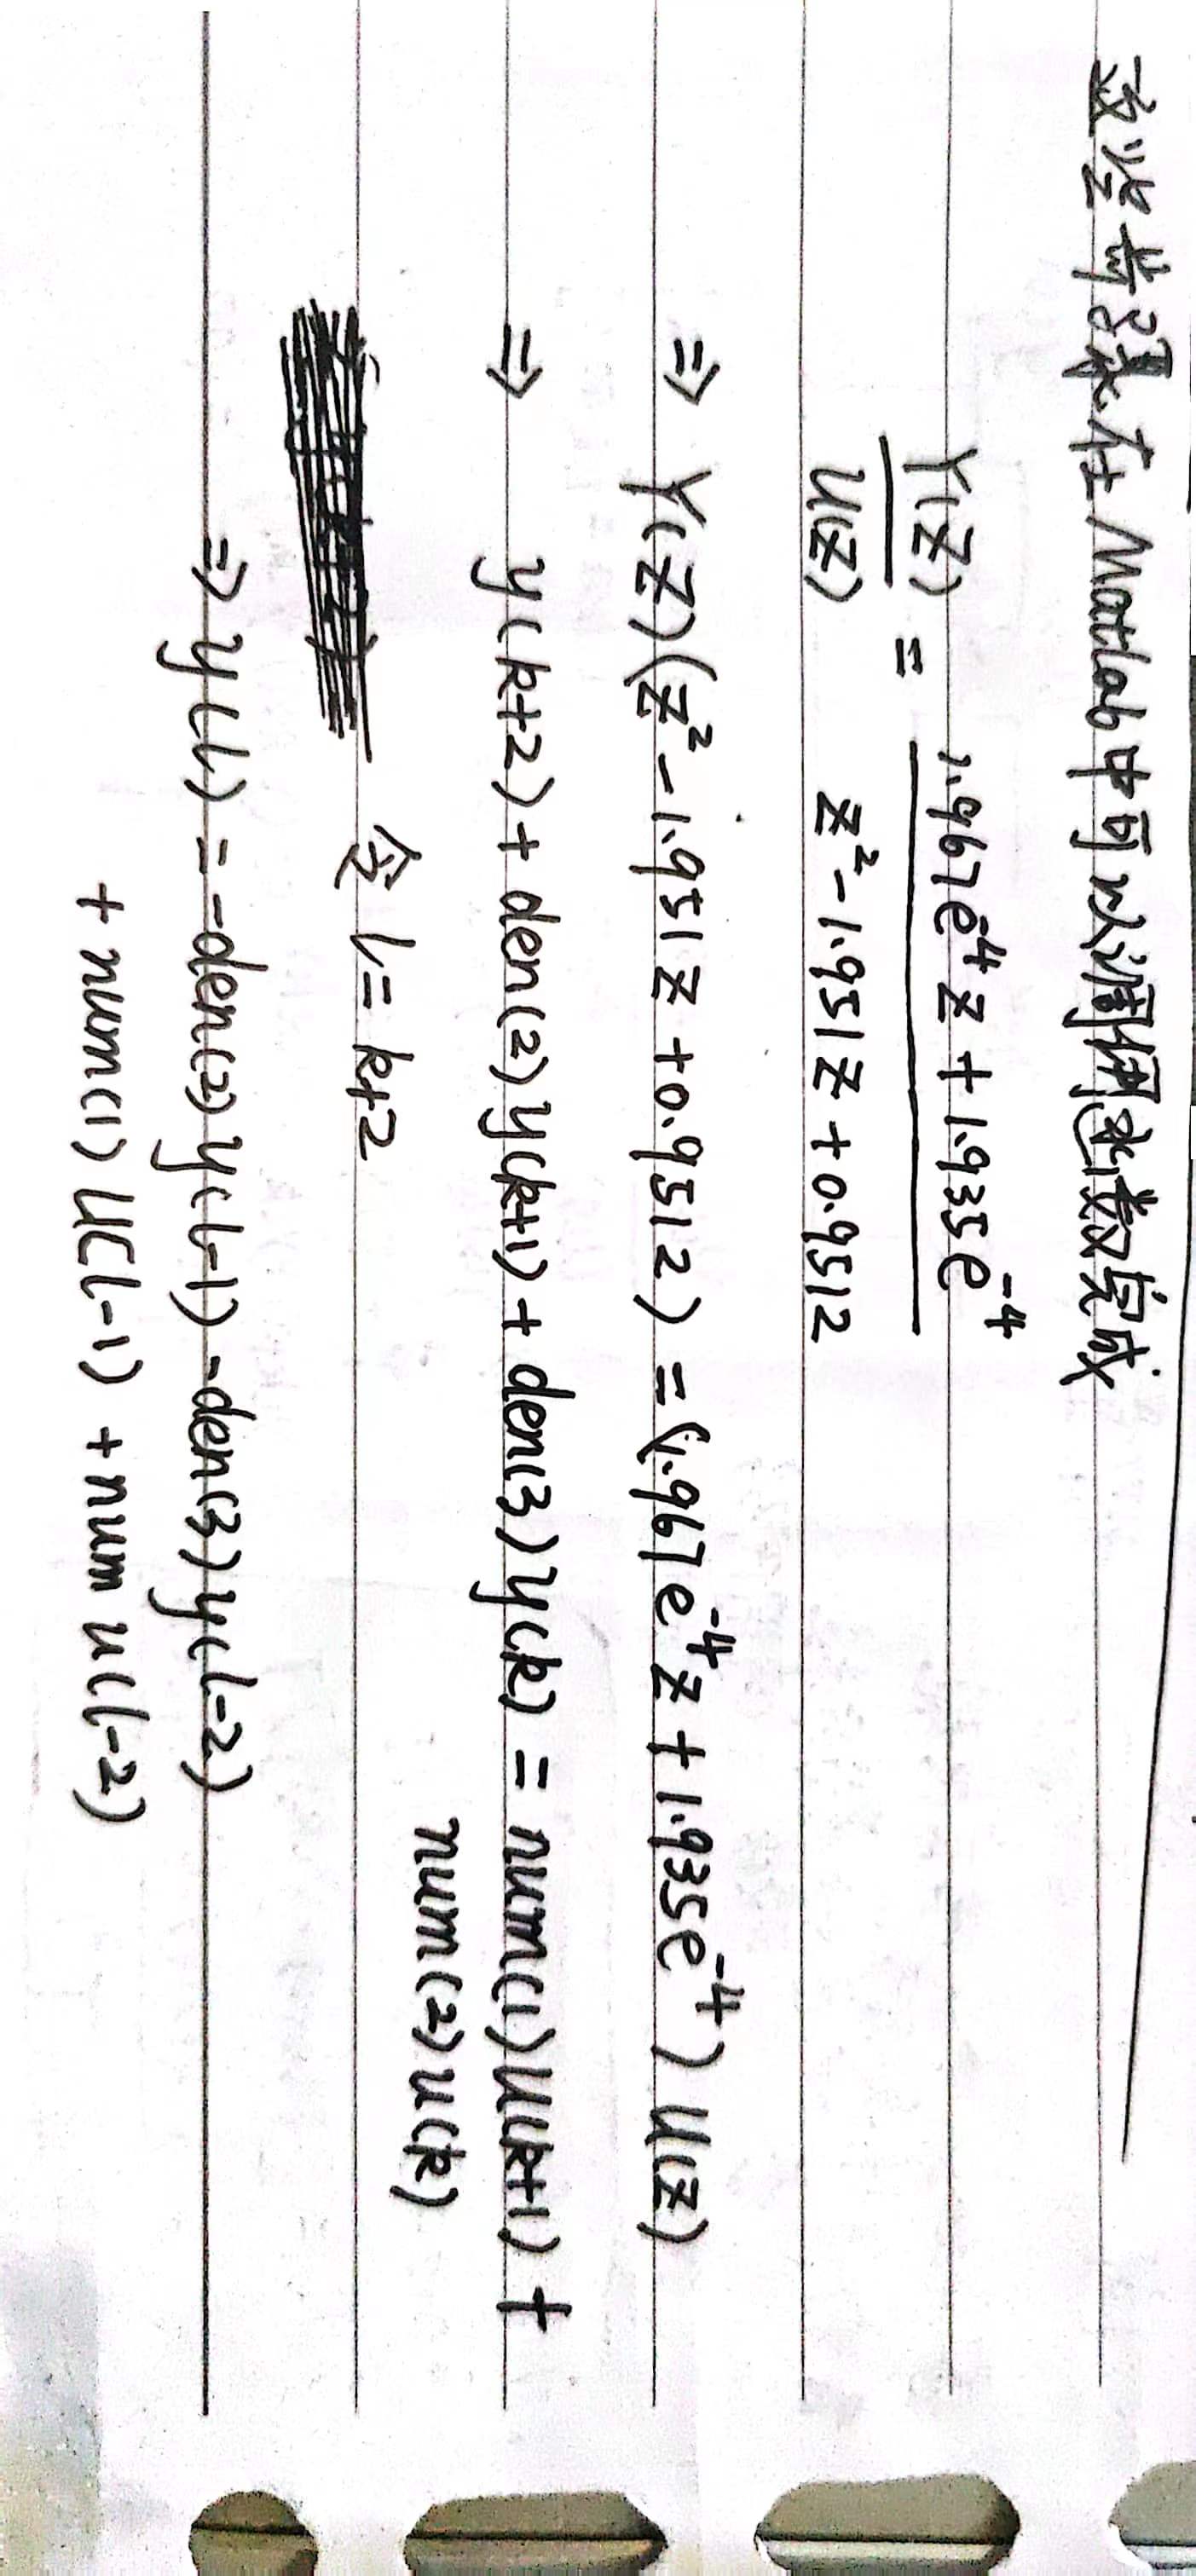 这些步骤在Matlab中可以调用函数完成
Y(Z)/U(Z) = (1.967e^-4 z + 1.935e^-4)/(z^2 - 1.951z + 0.9512)
⇒ Y(Z)(z^2 - 1.951z + 0.9512) = (1.967e^-4 z + 1.935e^-4) U(z)
⇒ y(k+2) + den(2) y(k+1) + den(3) y(k) = num(1) u(k+1) +
num(2) u(k)
令 l = k+2
⇒ y(l) = -den(2) y(l-1) - den(3) y(l-2)
+ num(1) u(l-1) + num u(l-2)